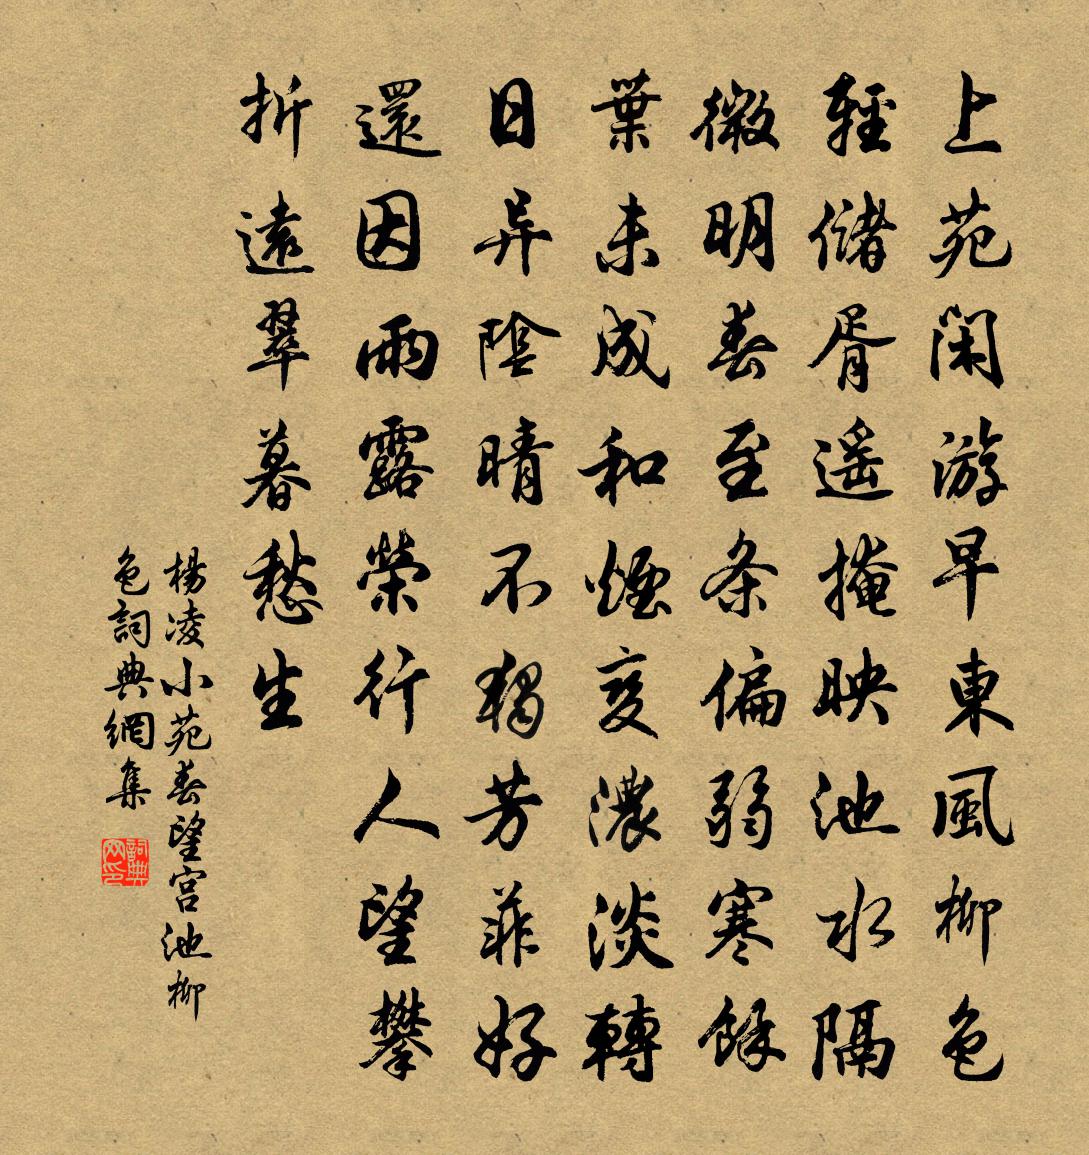 上苑闲游早東風柳色
輕儲胥遥掩映池水隔
微明春至条偏弱寒餘
葉未成和煙变濃淡轉
日异陰晴不獨芳菲好
還因雨露榮行人望攀
折遠翠暮愁生
楊凌小苑春望宫池柳
色詞典網集
詞典网印